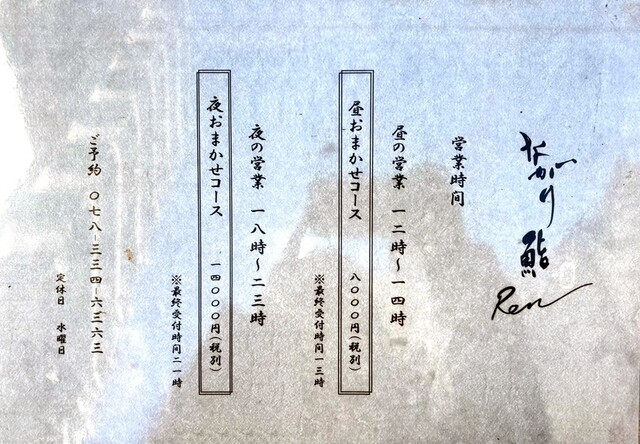 にぎり鮨
Ren
営業時間
昼の営業 一二時～一四時
昼おまかせコース 八〇〇〇円(税別)
※最終受付時間一三時
夜の営業 一八時～二三時
夜おまかせコース 一四〇〇〇円(税別)
※最終受付時間二一時
ご予約 〇七八-三三四-六三六三
定休日 水曜日